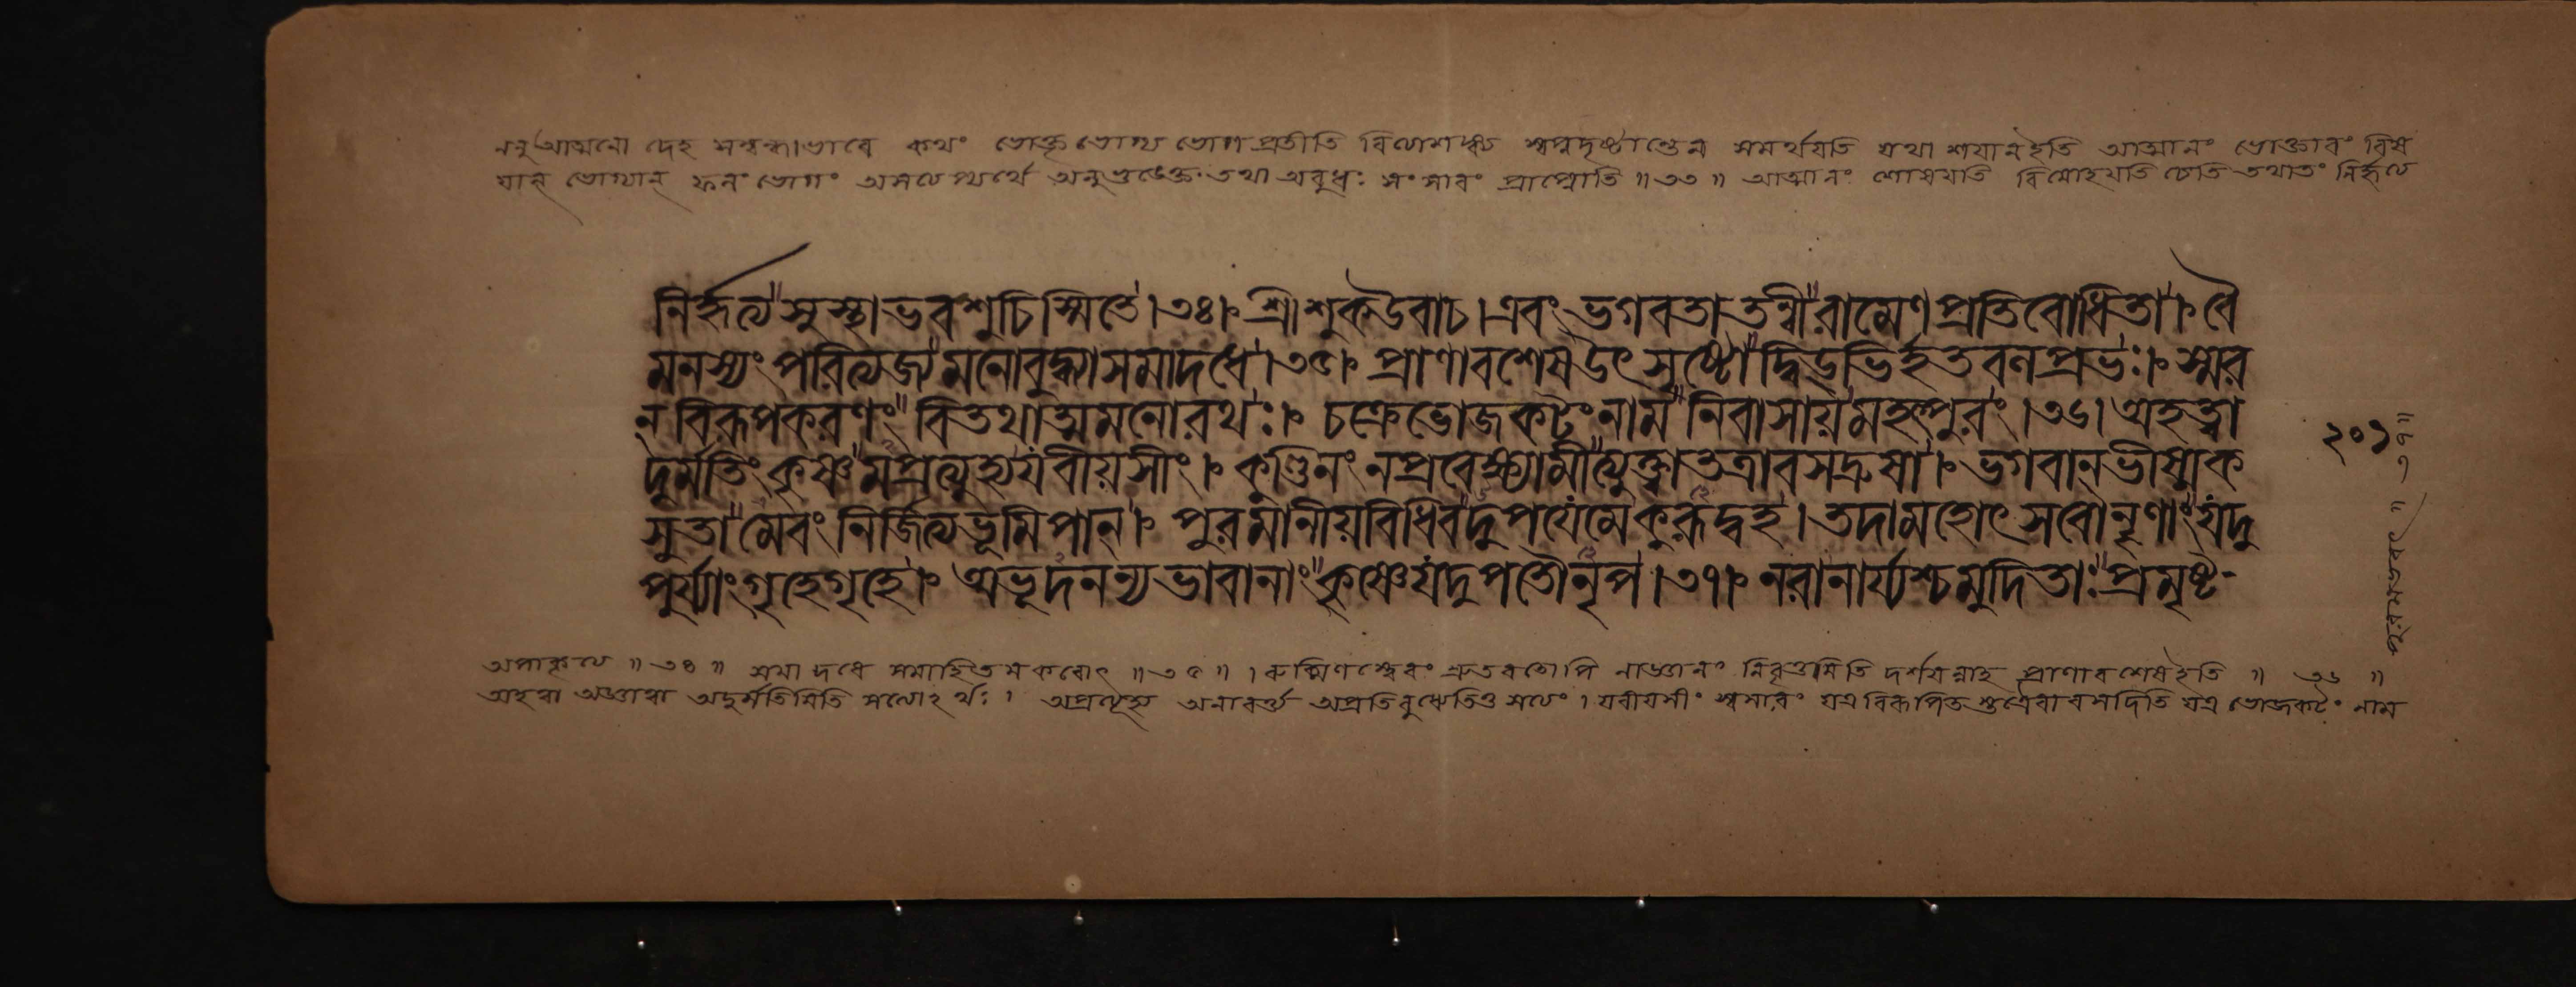 ননু আত্মনো দেহ সম্বন্ধাভাবে কথং ভোক্তৃ ভোগ্য ভোগ প্রতীতি স্বপ্নদৃষ্টান্তেন সমর্থয়তি যথা শয়ান ইতি আত্মানং ভোক্তারং বিষ
য়ান্ ভোগ্যান্ ফলং ভোগং অসত্যপ্যর্থে অনুভুঙ্ক্তে তথা অবুধঃ সংসারং প্রাপ্নোতি ॥ ৩৩ ॥ আত্মানং শোষয়তি বিমোহয়তি চেতি তথাতং নির্হৃত্য
নির্হৃত্য সুস্থা ভব শুচিস্মিতে । ৩৪ । শ্রী শুক উবাচ । এবং ভগবতা তন্বী রামেণ প্রতিবোধিতা । বৈ
মনস্যং পরিত্যজ্য মনোবুদ্ধ্যা সমাদধে । ৩৫ । প্রাণাবশেষ উৎসৃষ্টো দ্বিড্ভির্হতবলপ্রভঃ । স্মর
ন্ বিরূপকরণং বিতথাত্মমনোরথঃ । চক্রে ভোজকটং নাম নিবাসায় মহৎপুরং । ৩৬ । অহত্বা
দুর্মতিং কৃষ্ণমপ্রত্যুহ্য যবীয়সীং । কুণ্ডিনং ন প্রবেক্ষ্যামীত্যুক্ত্বা তত্রাবসদ্রুষা । ভগবান্ ভীষ্মক
সুতামেবং নির্জিত্য ভূমিপান্ । পুরমানীয় বিধিবদুপযেমে কুরূদ্বহ । তদা মহোৎসবো নৃণাং যদু
পুর্য্যাং গৃহে গৃহে । অভূদনন্যভাবানাং কৃষ্ণে যদুপতৌ নৃপ । ৩৭ । নরা নার্য্যশ্চ মুদিতাঃ প্রমৃষ্ট-
২০১
অপাকৃত্য ॥ ৩৪ ॥ সমাদধে সমাহিতমকরোৎ ॥ ৩৫ ॥ । নিবৃত্তমিতি দর্শয়ন্নাহ প্রাণাবশেষ ইতি ॥ ৩৬ ॥
অহত্বা অদুর্মতিমিতি । অপ্রত্যুহ্য যবীয়সীং স্বসারং যত্র ভোজকটং নাম